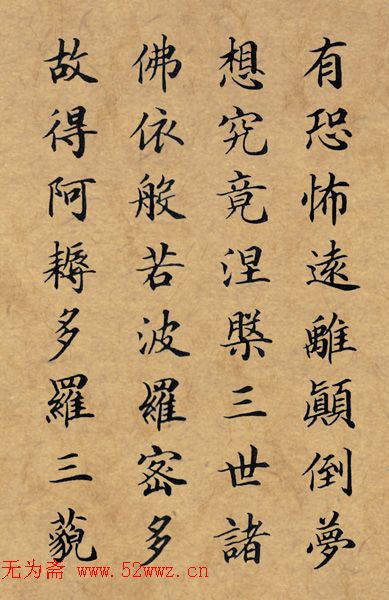 有恐怖遠離顛倒夢
想究竟涅槃三世諸
佛依般若波羅密多
故得阿耨多羅三藐
无为斋 www.52wwz.cn